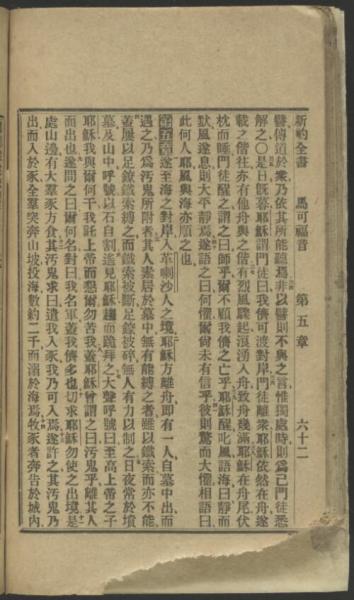 新約全書　馬可福音　第五章　六十二
譬傳道於衆乃依其所能聽焉非以譬則不與之言惟獨處時則爲己門徒悉
解之〇是日旣暮耶穌謂門徒曰我儕可渡對岸門徒離衆耶穌依然在舟遂
載之偕往亦有他舟與之偕有烈風驟起浪湧入舟致舟幾滿耶穌在舟尾伏
枕而睡門徒醒之謂之曰師乎不顧我儕之亡乎耶穌醒叱風語海曰靜而
默風遂息則大平靜焉遂語之曰何懼爾尙未有信乎彼則驚而大懼相語曰
此何人耶風與海亦順之也
第五章遂至海之對岸入革喇沙人之境耶穌方離舟卽有一人自墓中出而
遇之乃爲污鬼所附者其人素居於墓中無有能縛之者雖以鐵索而亦不能
蓋屢以足鐐鐵索縛之而鐵索被斷足鐐被碎無人有力以制之日夜常於墳
墓及山中呼號以石自割遙見耶穌趨而跪拜之大聲呼號曰至高上帝之子
耶穌我與爾何干我託上帝而懇爾勿苦我蓋耶穌曾謂之曰污鬼乎離其人
而出也遂問之曰爾何名對曰我名軍蓋我儕多也切求耶穌勿使之出境是
處山邊有大羣豕方食其污鬼求曰遣我入豕我乃可入焉遂許之其污鬼乃
出而入於豕全羣突奔山坡投海數約二千而溺於海焉牧豕者奔告於城內